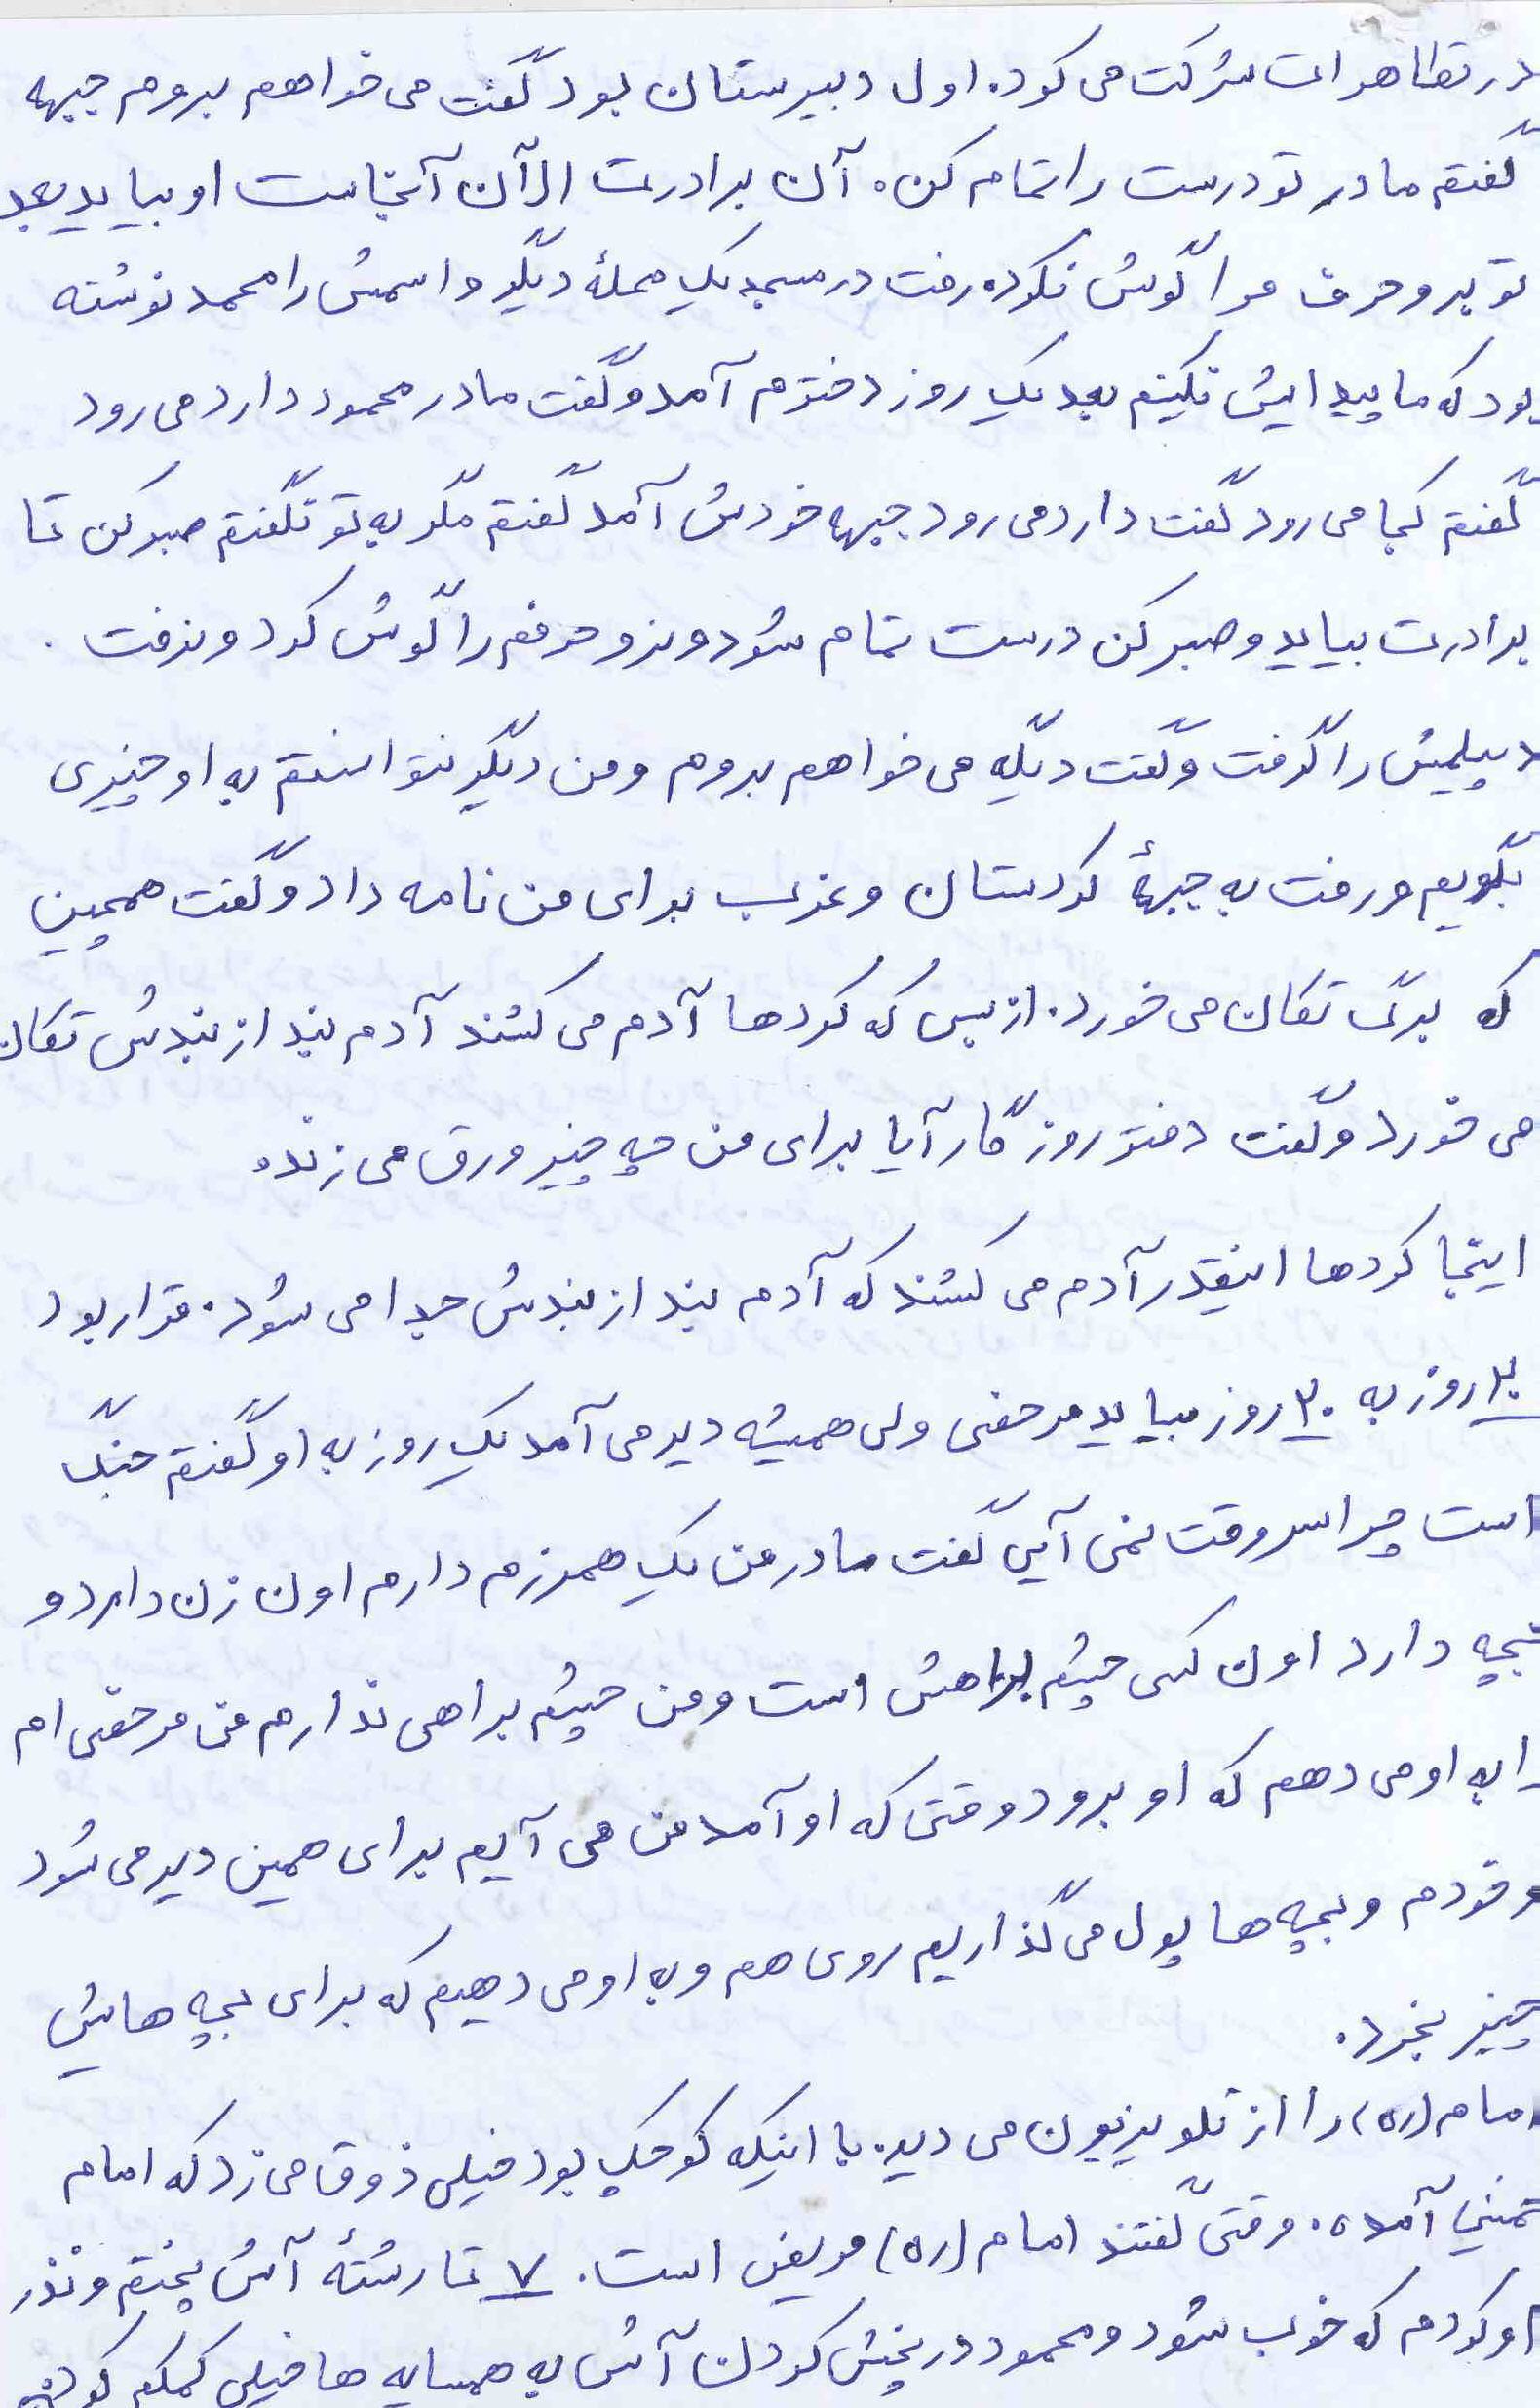 در تظاهرات شرکت می کرد. اول دبیرستان بود گفت می خواهم بروم جبهه
گفتم مادر تو درست را تمام کن. آن برادرت الآن آنجاست او بیاید بعد
تو برو حرف مرا گوش نکرده رفت در مسجد یک محلهٔ دیگر و اسمش را محمد نوشته
بود که ما پیدایش نکنیم بعد یک روز دخترم آمد و گفت مادر محمود دارد می رود
گفتم کجا می رود گفت دارد می رود جبهه خودش آمد گفتم مگر به تو نگفتم صبر کن تا
برادرت بیاید و صبر کن درست تمام شود و برو حرفم را گوش کرد و نرفت.
دیپلمش را گرفت و گفت دیگه می خواهم بروم و من دیگر نتوانستم به او چیزی
بگویم و رفت به جبههٔ کردستان و غرب برای من نامه داد و گفت همچین
که برگ تکان می خورد. از بس که کردها آدم می کشند آدم بند از بندش تکان
می خورد و گفت دفتر روزگار آیا برای من چه چیز ورق می زند.
اینجا کردها اینقدر آدم می کشند که آدم بند از بندش جدا می شود. قرار بود
۲۰ روز به ۲۰ روز بیاید مرخصی ولی همیشه دیر می آمد یک روز به او گفتم جنگ
است چرا سر وقت نمی آیی گفت مادر من یک همرزم دارم اون زن دارد و
بچه دارد اون کسی چشم براهش است و من چشم براهی ندارم من مرخصی ام
را به او می دهم که او برود وقتی که او آمد من می آیم برای همین دیر می شود
و خودم و بچه ها پول می گذاریم روی هم و به او می دهیم که برای بچه هایش
چیز بخرد.
امام (ره) را از تلویزیون می دید. با اینکه کوچک بود خیلی ذوق می زد که امام
خمینی آمده. وقتی گفتند امام (ره) مریض است. ۷ تا رشتهٔ آش پختم و نذر
او کردم که خوب شود و محمود در پخش کردن آش به همسایه ها خیلی کمکم کرد.